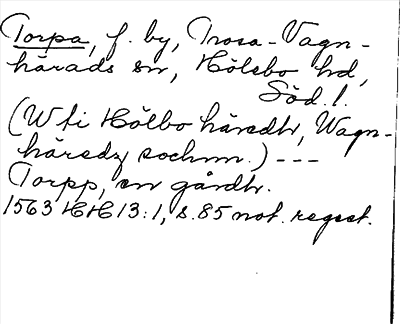 Torpa, f. by, Trosa-Vagn-
härads sn, Hölebo hd,
Söd. l.
(W ti Hölbo häredh, Wagn-
häredz sochnn.) ---
Torpp, en gårdh.
1563 HH 13:1, s. 85 not. regest.